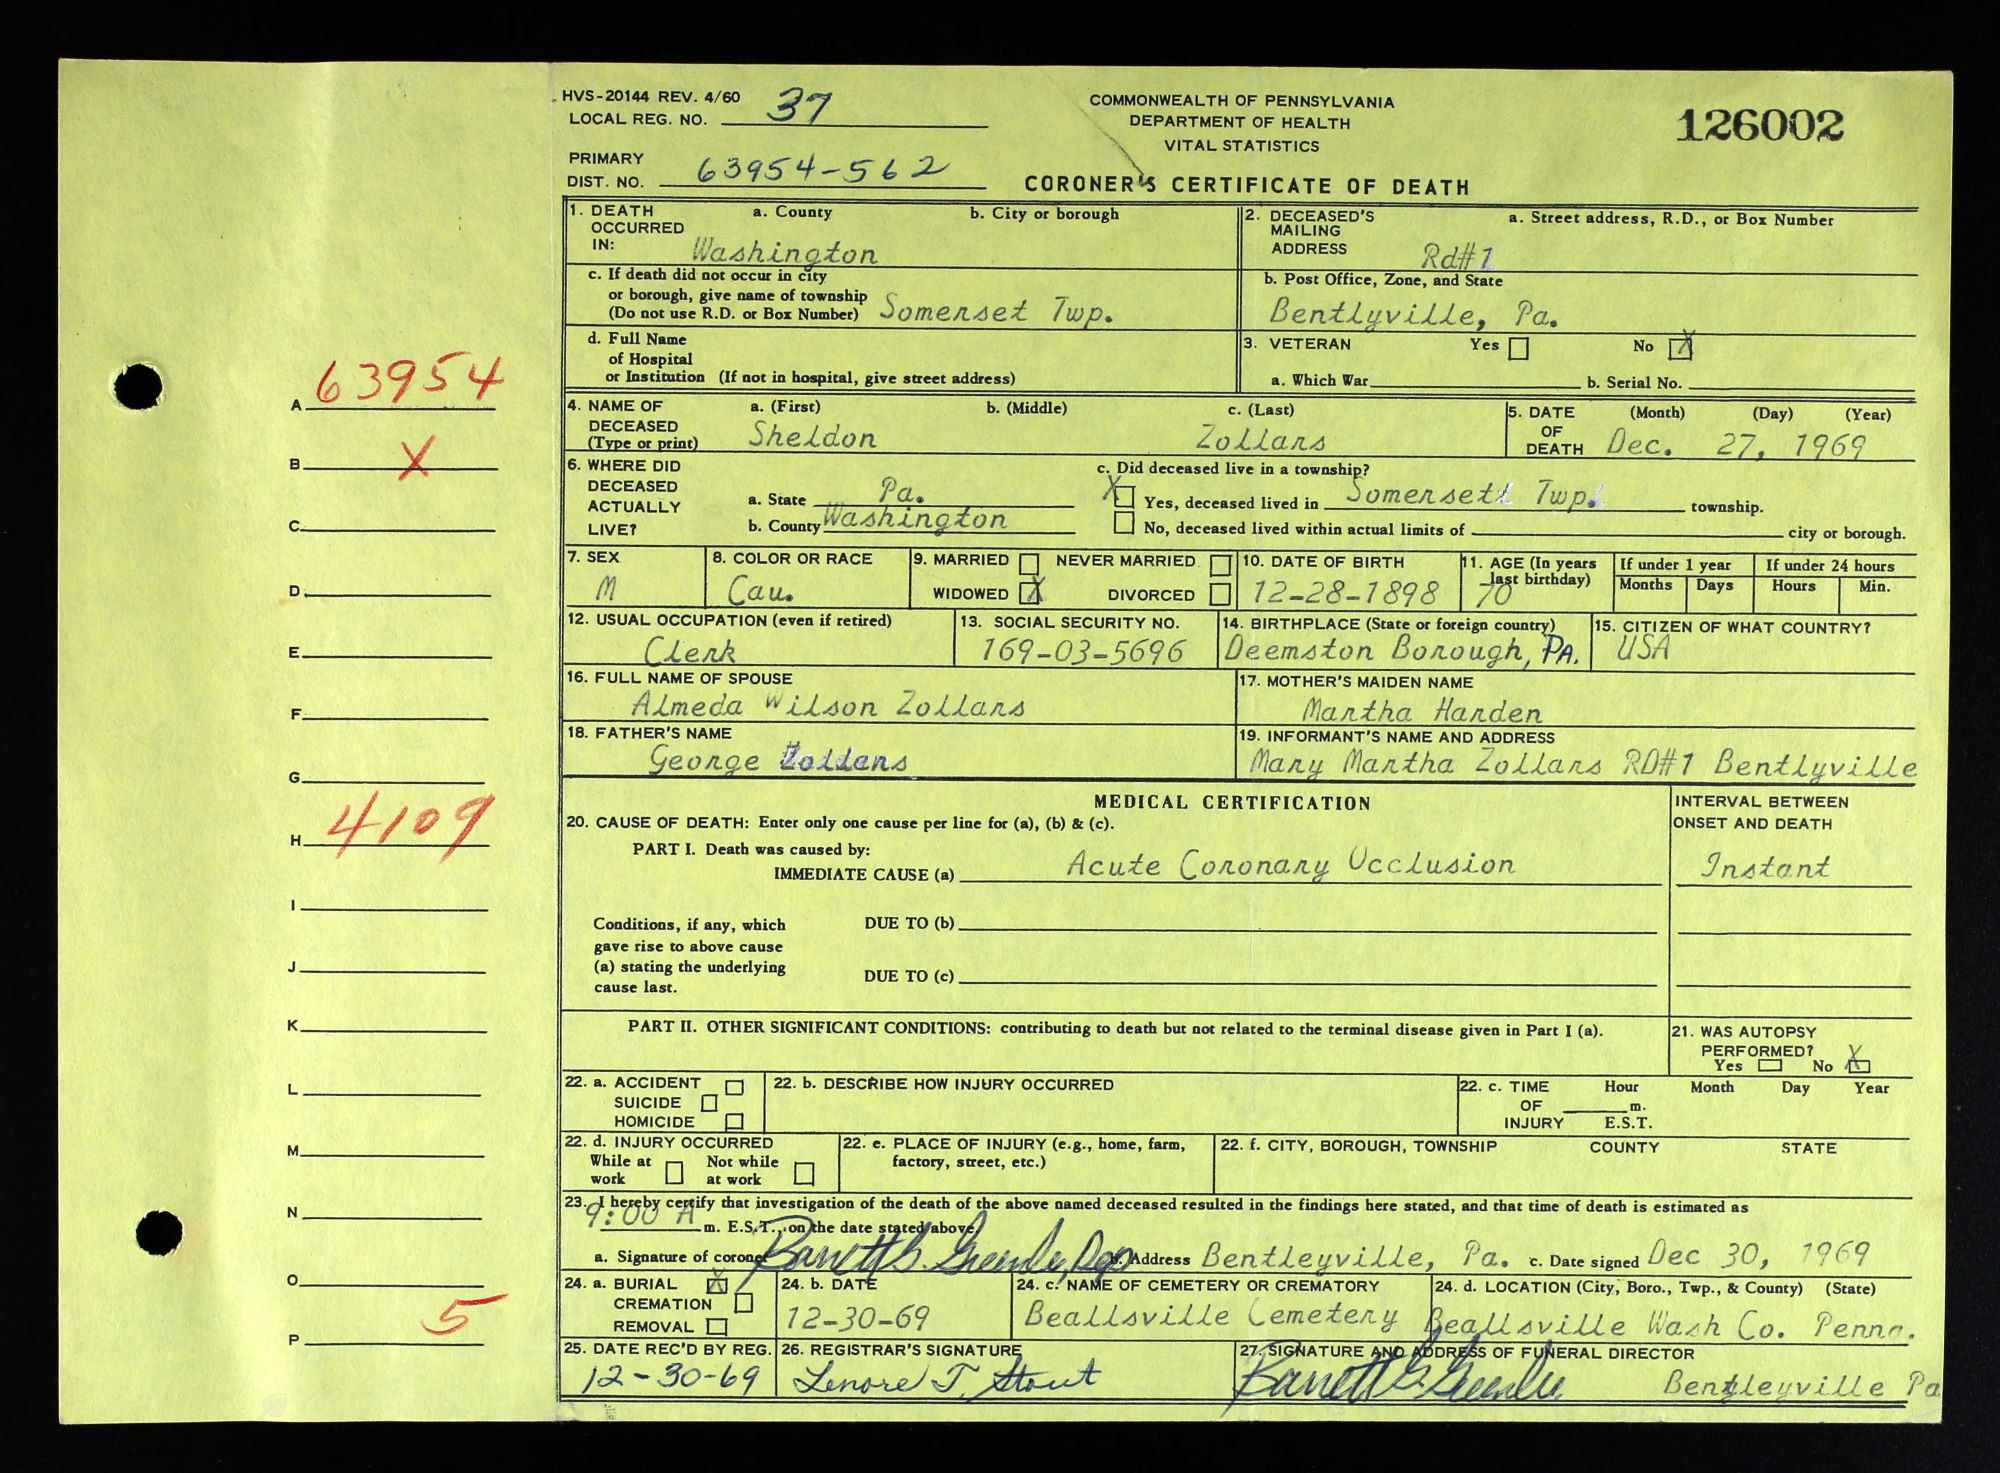 HVS-20144 REV. 4/60
LOCAL REG. NO. 37
PRIMARY
DIST. NO. 63954-562
COMMONWEALTH OF PENNSYLVANIA
DEPARTMENT OF HEALTH
VITAL STATISTICS
CORONER'S CERTIFICATE OF DEATH
126002
1. DEATH OCCURRED IN: a. County b. City or borough
Washington
2. DECEASED'S MAILING ADDRESS a. Street address, R.D., or Box Number
Rd#1
c. If death did not occur in city
or borough, give name of township
(Do not use R.D. or Box Number) Somerset Twp.
b. Post Office, Zone, and State
Bentlyville, Pa.
d. Full Name
of Hospital
or Institution (If not in hospital, give street address)
3. VETERAN Yes No X
a. Which War b. Serial No.
4. NAME OF DECEASED (Type or print) a. (First) b. (Middle) c. (Last)
Sheldon Zollars
5. DATE OF DEATH (Month) (Day) (Year)
Dec. 27, 1969
6. WHERE DID DECEASED ACTUALLY LIVE?
a. State Pa.
b. County Washington
c. Did deceased live in a township?
X Yes, deceased lived in Somersett Twp. township.
No, deceased lived within actual limits of city or borough.
7. SEX
M
8. COLOR OR RACE
Cau.
9. MARRIED NEVER MARRIED
WIDOWED X DIVORCED
10. DATE OF BIRTH
12-28-1898
11. AGE (In years last birthday)
70
If under 1 year
Months Days
If under 24 hours
Hours Min.
12. USUAL OCCUPATION (even if retired)
Clerk
13. SOCIAL SECURITY NO.
169-03-5696
14. BIRTHPLACE (State or foreign country)
Deemston Borough, PA.
15. CITIZEN OF WHAT COUNTRY?
USA
16. FULL NAME OF SPOUSE
Almeda Wilson Zollars
17. MOTHER'S MAIDEN NAME
Martha Harden
18. FATHER'S NAME
George Zollars
19. INFORMANT'S NAME AND ADDRESS
Mary Martha Zollars RD#1 Bentlyville
MEDICAL CERTIFICATION
20. CAUSE OF DEATH: Enter only one cause per line for (a), (b) & (c).
INTERVAL BETWEEN
ONSET AND DEATH
PART I. Death was caused by:
IMMEDIATE CAUSE (a) Acute Coronary Occlusion
Instant
Conditions, if any, which
gave rise to above cause
(a) stating the underlying
cause last.
DUE TO (b)
DUE TO (c)
PART II. OTHER SIGNIFICANT CONDITIONS: contributing to death but not related to the terminal disease given in Part I (a).
21. WAS AUTOPSY
PERFORMED?
Yes No X
22. a. ACCIDENT
SUICIDE
HOMICIDE
22. b. DESCRIBE HOW INJURY OCCURRED
22. c. TIME OF INJURY Hour Month Day Year
m.
E.S.T.
22. d. INJURY OCCURRED
While at work Not while at work
22. e. PLACE OF INJURY (e.g., home, farm,
factory, street, etc.)
22. f. CITY, BOROUGH, TOWNSHIP COUNTY STATE
23. I hereby certify that investigation of the death of the above named deceased resulted in the findings here stated, and that time of death is estimated as
9:00 A m. E.S.T., on the date stated above.
a. Signature of coroner Barrett G. Greenlee, Dep b. Address Bentleyville, Pa. c. Date signed Dec 30, 1969
24. a. BURIAL X
CREMATION
REMOVAL
24. b. DATE
12-30-69
24. c. NAME OF CEMETERY OR CREMATORY
Beallsville Cemetery
24. d. LOCATION (City, Boro., Twp., & County) (State)
Beallsville Wash Co. Penna.
25. DATE REC'D BY REG.
12-30-69
26. REGISTRAR'S SIGNATURE
Lenore T. Stout
27. SIGNATURE AND ADDRESS OF FUNERAL DIRECTOR
Barrett G. Greenlee Bentleyville Pa
A 63954
B X
C
D
E
F
G
H 4109
I
J
K
L
M
N
O
P 5